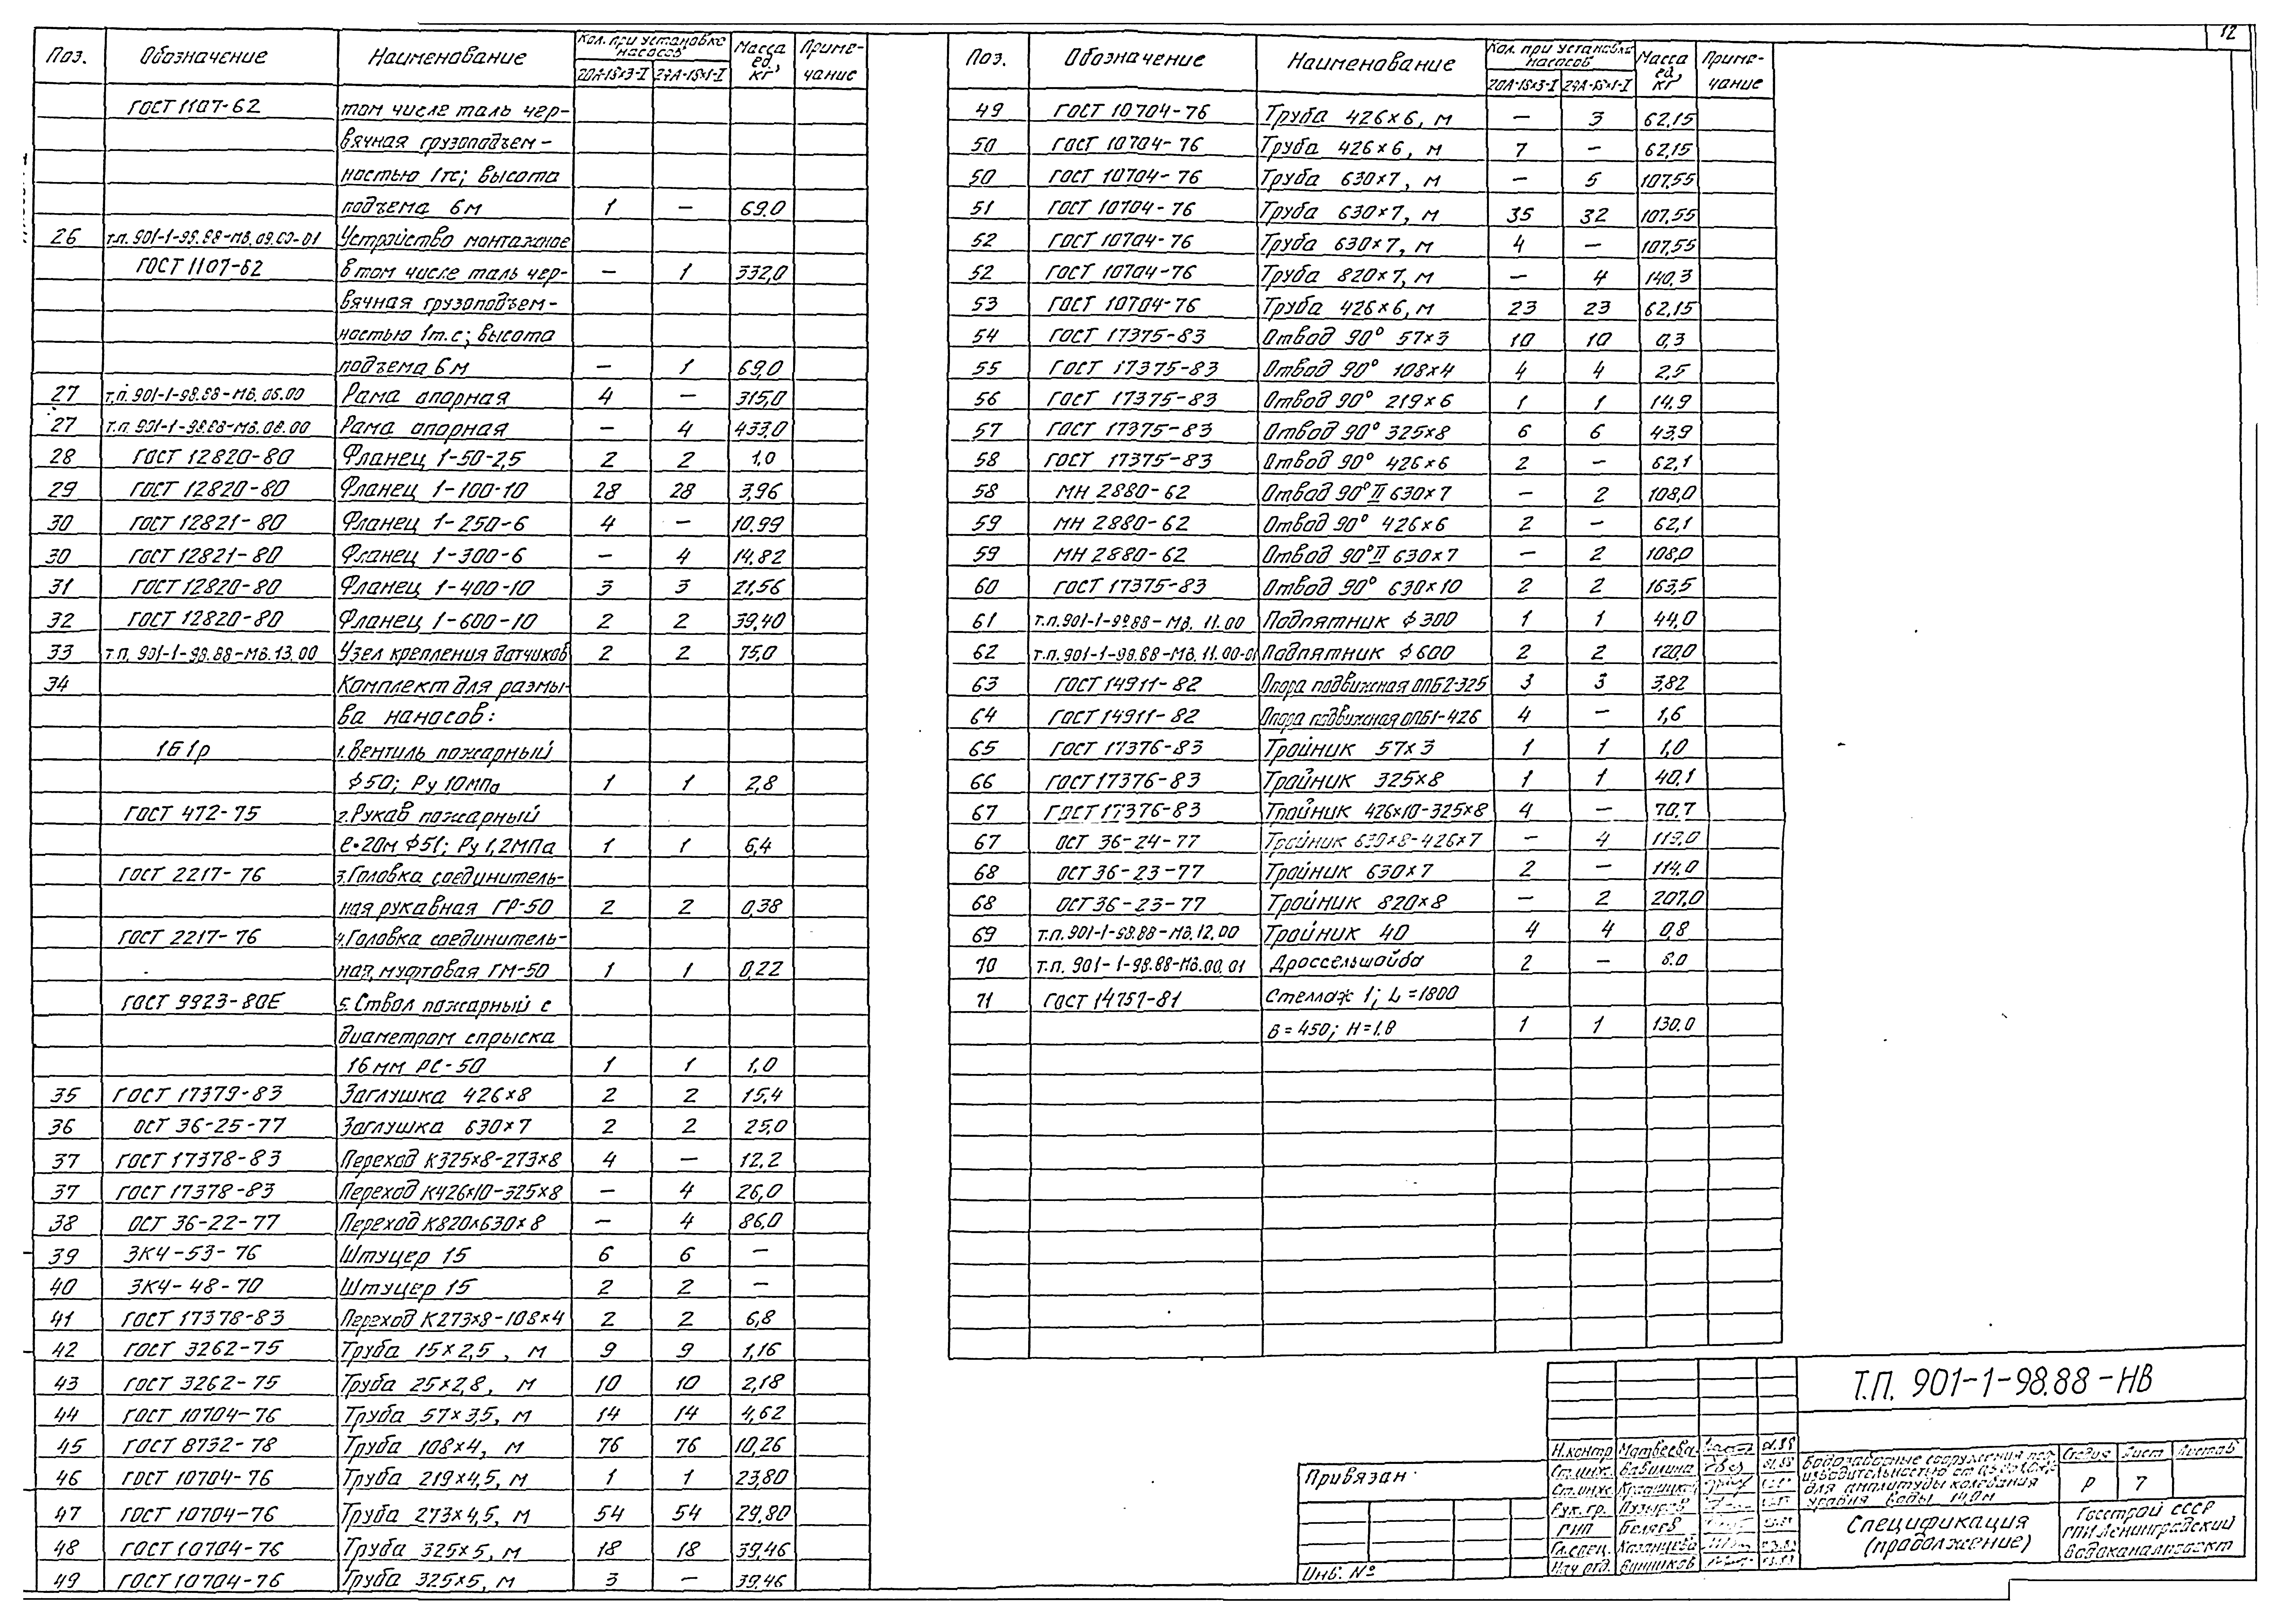 12
Поз. Обозначение Наименование Кол. при установке насосов Масса ед., кг Примечание
20А-18×3-I 24А-18×1-I
ГОСТ 1107-62 том числе таль чер-
вячная грузоподъем-
ностью 1тс; высота
подъема 6м 1 — 69,0
26 т.п. 901-1-98.88-МВ.09.00-01 Устройство монтажное
ГОСТ 1107-62 в том числе таль чер- — 1 332,0
вячная грузоподъем-
ностью 1т.с; высота
подъема 6м — 1 69,0
27 т.п. 901-1-98.88-МВ.06.00 Рама опорная 4 — 315,0
27 т.п. 901-1-98.88-МВ.08.00 Рама опорная — 4 433,0
28 ГОСТ 12820-80 Фланец 1-50-2,5 2 2 1,0
29 ГОСТ 12820-80 Фланец 1-100-10 28 28 3,96
30 ГОСТ 12821-80 Фланец 1-250-6 4 — 10.99
30 ГОСТ 12821-80 Фланец 1-300-6 — 4 14,82
31 ГОСТ 12820-80 Фланец 1-400-10 3 3 21,56
32 ГОСТ 12820-80 Фланец 1-600-10 2 2 39,40
33 т.п. 901-1-98.88-МВ.13.00 Узел крепления датчиков 2 2 75,0
34 Комплект для размы-
ва наносов:
1Б1р 1. Вентиль пожарный
ф50; Ру 10МПа 1 1 2,8
ГОСТ 472-75 2. Рукав пожарный
ℓ=20м ф51; Ру 1,2МПа 1 1 6,4
ГОСТ 2217-76 3. Головка соединитель-
ная рукавная ГР-50 2 2 0,38
ГОСТ 2217-76 4. Головка соединитель-
ная муфтовая ГМ-50 1 1 0,22
ГОСТ 9923-80Е 5. Ствол пожарный с
диаметром спрыска
16мм РС-50 1 1 1,0
35 ГОСТ 17379-83 Заглушка 426×8 2 2 15,4
36 ОСТ 36-25-77 Заглушка 630×7 2 2 25,0
37 ГОСТ 17378-83 Переход К325×8-273×8 4 — 12.2
37 ГОСТ 17378-83 Переход К426×10-325×8 — 4 26,0
38 ОСТ 36-22-77 Переход К820×630×8 — 4 86,0
39 ЗК4-53-76 Штуцер 15 6 6 —
40 ЗК4-48-70 Штуцер 15 2 2 —
41 ГОСТ 17378-83 Переход К273×8-108×4 2 2 6,8
42 ГОСТ 3262-75 Труба 15×2,5, м 9 9 1,16
43 ГОСТ 3262-75 Труба 25×2,8, м 10 10 2,18
44 ГОСТ 10704-76 Труба 57×3,5, м 14 14 4,62
45 ГОСТ 8732-78 Труба 108×4, м 76 76 10,26
46 ГОСТ 10704-76 Труба 219×4,5, м 1 1 23,80
47 ГОСТ 10704-76 Труба 273×4,5, м 54 54 29,80
48 ГОСТ 10704-76 Труба 325×5, м 18 18 39,46
49 ГОСТ 10704-76 Труба 325×5, м 3 — 39,46
Поз. Обозначение Наименование Кол. при установке насосов Масса ед., кг Примечание
20А-18×3-I 24А-18×1-I
49 ГОСТ 10704-76 Труба 426×6, м — 3 62,15
50 ГОСТ 10704-76 Труба 426×6, м 7 — 62,15
50 ГОСТ 10704-76 Труба 630×7, м — 5 107,55
51 ГОСТ 10704-76 Труба 630×7, м 35 32 107,55
52 ГОСТ 10704-76 Труба 630×7, м 4 — 107,55
52 ГОСТ 10704-76 Труба 820×7, м — 4 140,3
53 ГОСТ 10704-76 Труба 426×6, м 23 23 62,15
54 ГОСТ 17375-83 Отвод 90° 57×3 10 10 0,3
55 ГОСТ 17375-83 Отвод 90° 108×4 4 4 2,5
56 ГОСТ 17375-83 Отвод 90° 219×6 1 1 14,9
57 ГОСТ 17375-83 Отвод 90° 325×8 6 6 43,9
58 ГОСТ 17375-83 Отвод 90° 426×6 2 — 62,1
58 МН 2880-62 Отвод 90° II 630×7 — 2 108,0
59 МН 2880-62 Отвод 90° 426×6 2 — 62,1
59 МН 2880-62 Отвод 90° II 630×7 — 2 108,0
60 ГОСТ 17375-83 Отвод 90° 630×10 2 2 163,5
61 т.п. 901-1-98.88-МВ.11.00 Подпятник ф300 1 1 44,0
62 т.п. 901-1-98.88-МВ.11.00-01 Подпятник ф600 2 2 120,0
63 ГОСТ 14911-82 Опора подвижная ОПБ2-325 3 3 3,82
64 ГОСТ 14911-82 Опора подвижная ОПБ1-426 4 — 1,6
65 ГОСТ 17376-83 Тройник 57×3 1 1 1,0
66 ГОСТ 17376-83 Тройник 325×8 1 1 40,1
67 ГОСТ 17376-83 Тройник 426×10-325×8 4 — 70,7
67 ОСТ 36-24-77 Тройник 630×8-426×7 — 4 113,0
68 ОСТ 36-23-77 Тройник 630×7 2 — 114,0
68 ОСТ 36-23-77 Тройник 820×8 — 2 207,0
69 т.п. 901-1-98.88-МВ.12.00 Тройник 40 4 4 0,8
70 т.п. 901-1-98.88-МВ.00.01 Дроссельшайба 2 — 8.0
71 ГОСТ 14757-81 Стеллаж 1; L=1800
В=450; Н=1.8 1 1 130.0
Т.П. 901-1-98.88-НВ
Привязан:
Инв. №
Н.контр Матвеева
Ст.инж. Вавилина
Ст.инж.
Рук. гр. Пузырев
ГИП Беляев
Гл.спец. Казанцева
Нач. отд. Винников
Водозаборные сооружения про-
изводительностью от
для амплитуды колебания
уровня воды 14,0м
Стадия Лист Листов
Р 7
Спецификация
(продолжение)
Госстрой СССР
ГПИ Ленинградский
Водоканалпроект